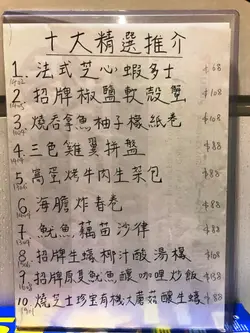 十大精選推介
1. 法式芝心蝦多士 $68
2. 招牌椒鹽軟殼蟹 $108
3 燒吞拿魚柚子檬紙卷 $108
4. 三色雞翼拼盤 $88
5. 高蛋烤牛肉生菜包 $88
6. 海膽炸春卷 $88
7. 魷魚,藕苗沙律 $88
8. 招牌生蠔椰汁酸湯檬
9 招牌原隻魷魚釀咖哩炒飯 $138
10. 燒芝士珍宝有機大蘑菇釀生蠔